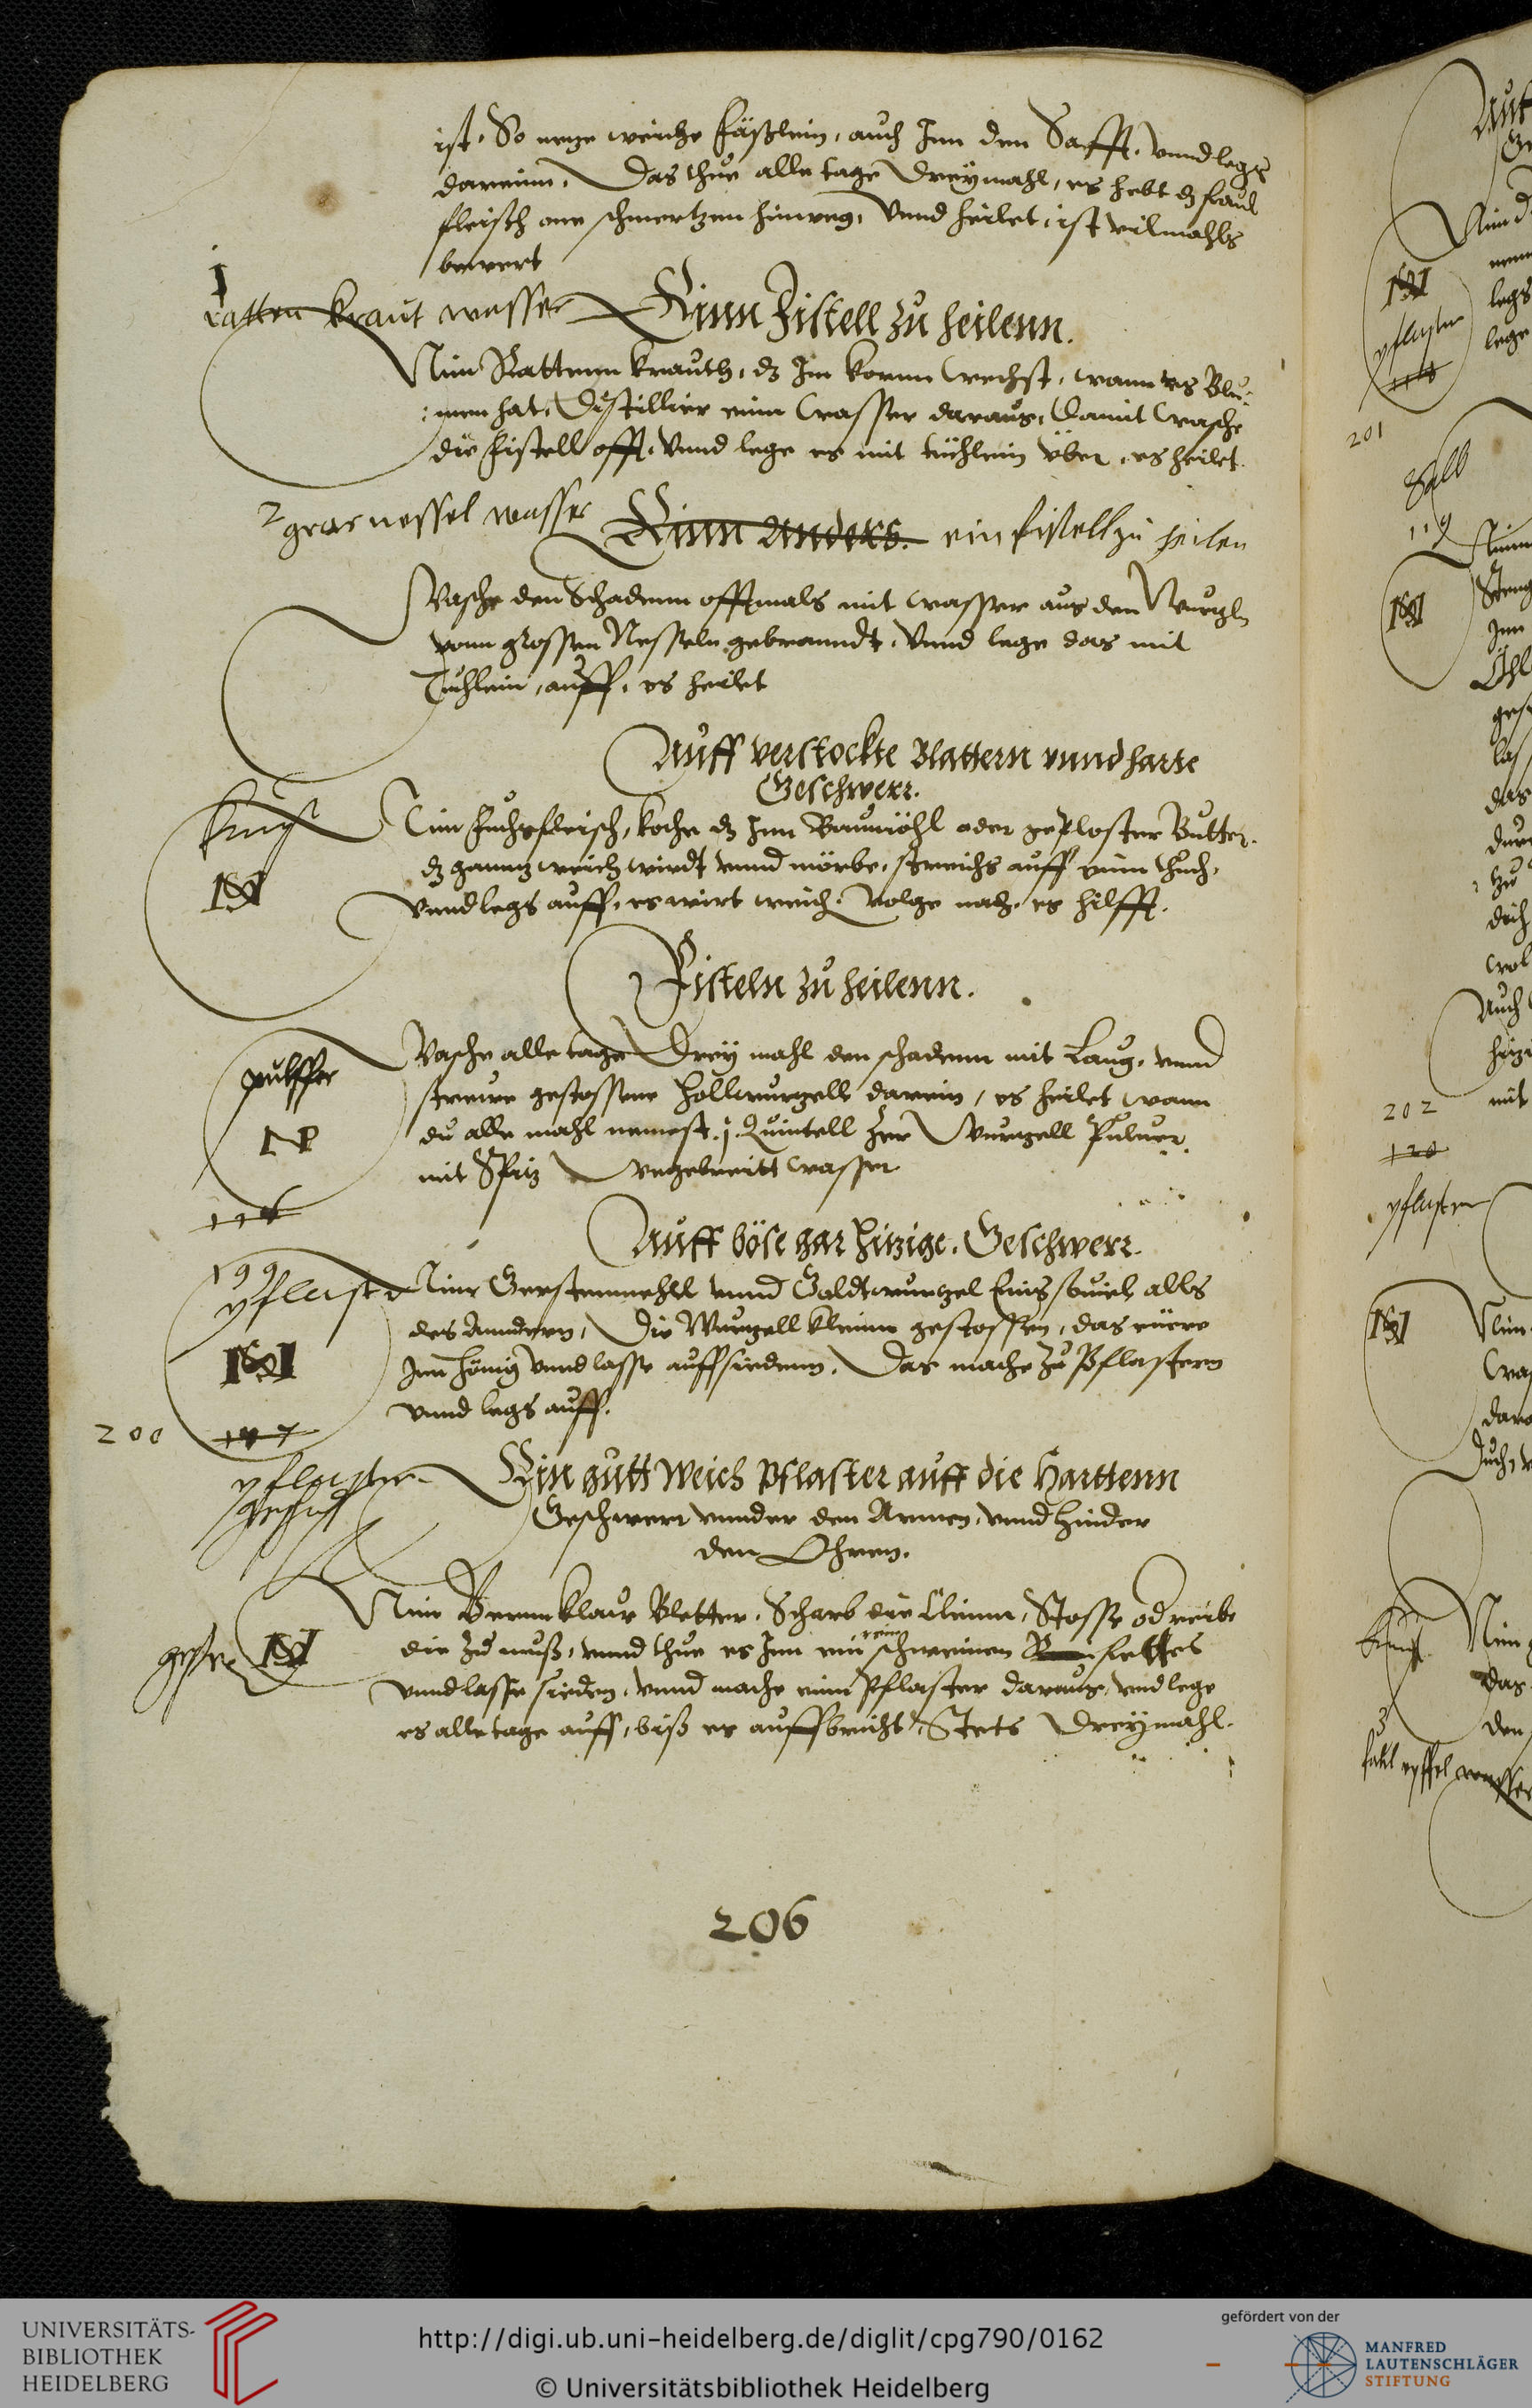 ist. So netze weiche fäßlein, auch Inn den Safft, vnnd legs
dareinn, Das thue alle tage Dreymahl, es hebt dz faul
fleisch one schmertzen hinweg, Vnnd heilet, ist vilmahls
bewert
1
ratten kraut wasser
Einn Fistell zu heilenn.
Nim Rattenn krauth, dz Im kornn wechst, wann es Blu-
:men hat, Distillier einn Wasser daraus, Damit Wasche
die fistell offt, Vnnd lege es mit tüchlein über, es heilet.
2
gros nessel wasser
Einn Anders. ein fistell zu heilen
Wasche den Schadenn offtmals mit wasser aus den Wurzln
vonn grossen Nesseln gebranndt, Vnnd lege das mit
Tüchlein, auff, es heilet
Auff verstockte Blattern vnnd harte
Geschwerr.
kunst
Nim fuchsfleisch, koche dz Inn Baumöhl oder geploster Butter.
dz gannz weich wirdt vnnd mörbe, streichs auff einn thuch,
vnnd legs auff, es wirt weich. Volge nach, es hilfft.
Fisteln zu heilenn.
pulffer
Wasche alle tage Drey mahl den schadenn mit Laug, vnnd
strewe gestossene Hollwurzell darein, es heilet wann
du alle mahl nemest .j. Quintell Der Wurzell Puluer
mit Spitz Wegebreitt wasser
116
Auff böse gar Hitzige. Geschwerr.
199
pflaster
Nim Gerstenmehll vnnd Goldtwurzel Eins souiel alls
des Anndern, Die Wurzell kleinn gestossen, das rüere
Inn Hönig vnnd lasse auffsiedenn, Das mache zu Pflastern
vnnd legs auff.
200
117
pflaster
Ein gutt Weich Pflaster auff die Harttenn
Geschwerr vnnder den Armen, vnnd Hinder
den Ohren.
Nim Bernnklaue Bletter, Scharb die klienn, Stosse od reibe
die zu muß, vnnd thue es Inn ein schweinen fettes
rein
vnnd lasse sieden, vnnd mache einn Pflaster daraus, vnd lege
es alle tage auff, biß es auffbricht, Stets Dreymahl.
206
201
pflaster
Salb
119
202
120
pflaster
kunst
3
wasser
UNIVERSITÄTS-
BIBLIOTHEK
HEIDELBERG
http://digi.ub.uni-heidelberg.de/diglit/cpg790/0162
© Universitätsbibliothek Heidelberg
gefördert von der
MANFRED
LAUTENSCHLÄGER
STIFTUNG